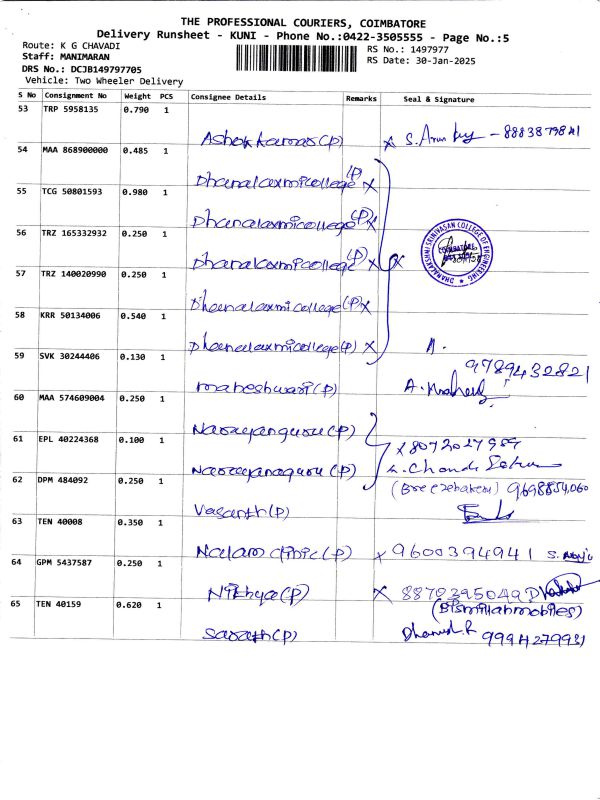 THE PROFESSIONAL COURIERS, COIMBATORE
Delivery Runsheet - KUNI - Phone No.:0422-3505555 - Page No.:5
Route: K G CHAVADI
RS No.: 1497977
Staff: MANIMARAN
RS Date: 30-Jan-2025
DRS No.: DCJB149797705
Vehicle: Two Wheeler Delivery
S No Consignment No Weight PCS Consignee Details Remarks Seal & Signature
53 TRP 5958135 0.790 1
Ashok kumar (P) x S. Arun - 8883879841
54 MAA 868900000 0.485 1
Dhanalaxmicollege (P) x
55 TCG 50801593 0.980 1
Dhanalaxmicollege (P) x
56 TRZ 165332932 0.250 1
Dhanalaxmicollege (P) x x
DHANALAKSHMI SRINIVASAN COLLEGE OF ENGINEERING
COIMBATORE
57 TRZ 140020990 0.250 1
Dhanalaxmi college (P) x
58 KRR 50134006 0.540 1
Dhanalaxmicollege (P) x
59 SVK 30244406 0.130 1
9789432821
maheshwari (P) A.
60 MAA 574609004 0.250 1
Narayanguru (P)
61 EPL 40224368 0.100 1
x 8072027959
Narayanaguru (P)
62 DPM 484092 0.250 1
9698854060
Vasanth (P)
63 TEN 40008 0.350 1
Nalam clinic (P) x 9600394941
64 GPM 5437587 0.250 1
Nikhya (P) x 8872395049
65 TEN 40159 0.620 1
(Bismillahmobiles)
Sarath (P) 9994279931